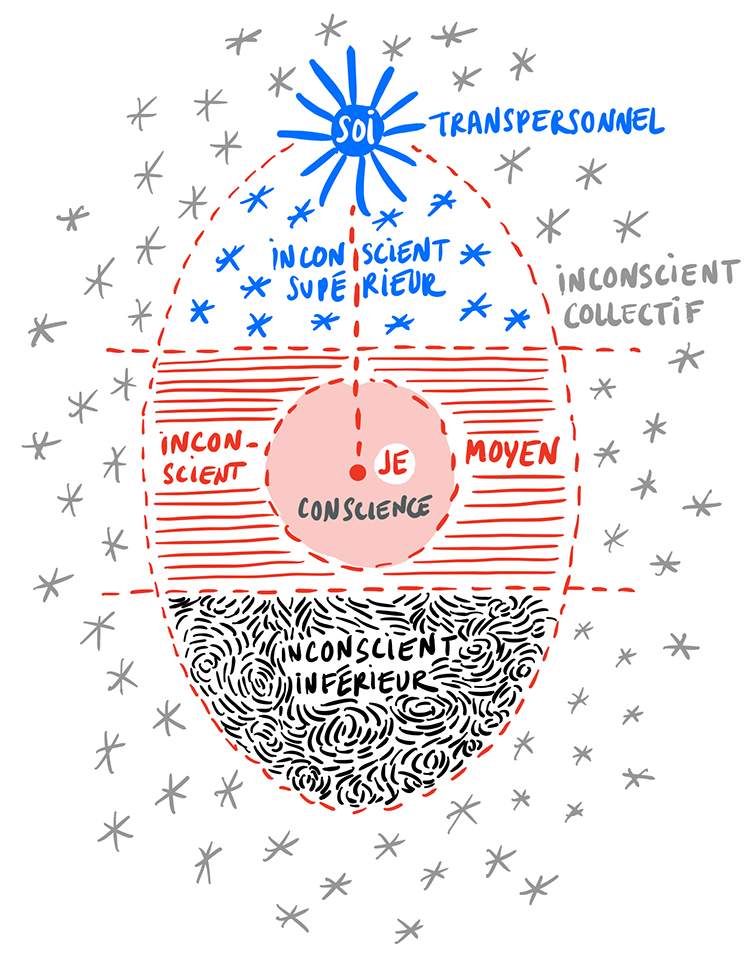 SOi
TRANSPERSONNEL
iNCONSCiENT
SUPÉRiEUR
iNCONSCiENT
COLLECTiF
iNCON-
SCiENT
JE
MOYEN
CONSCiENCE
iNCONSCiENT
iNFÉRiEUR